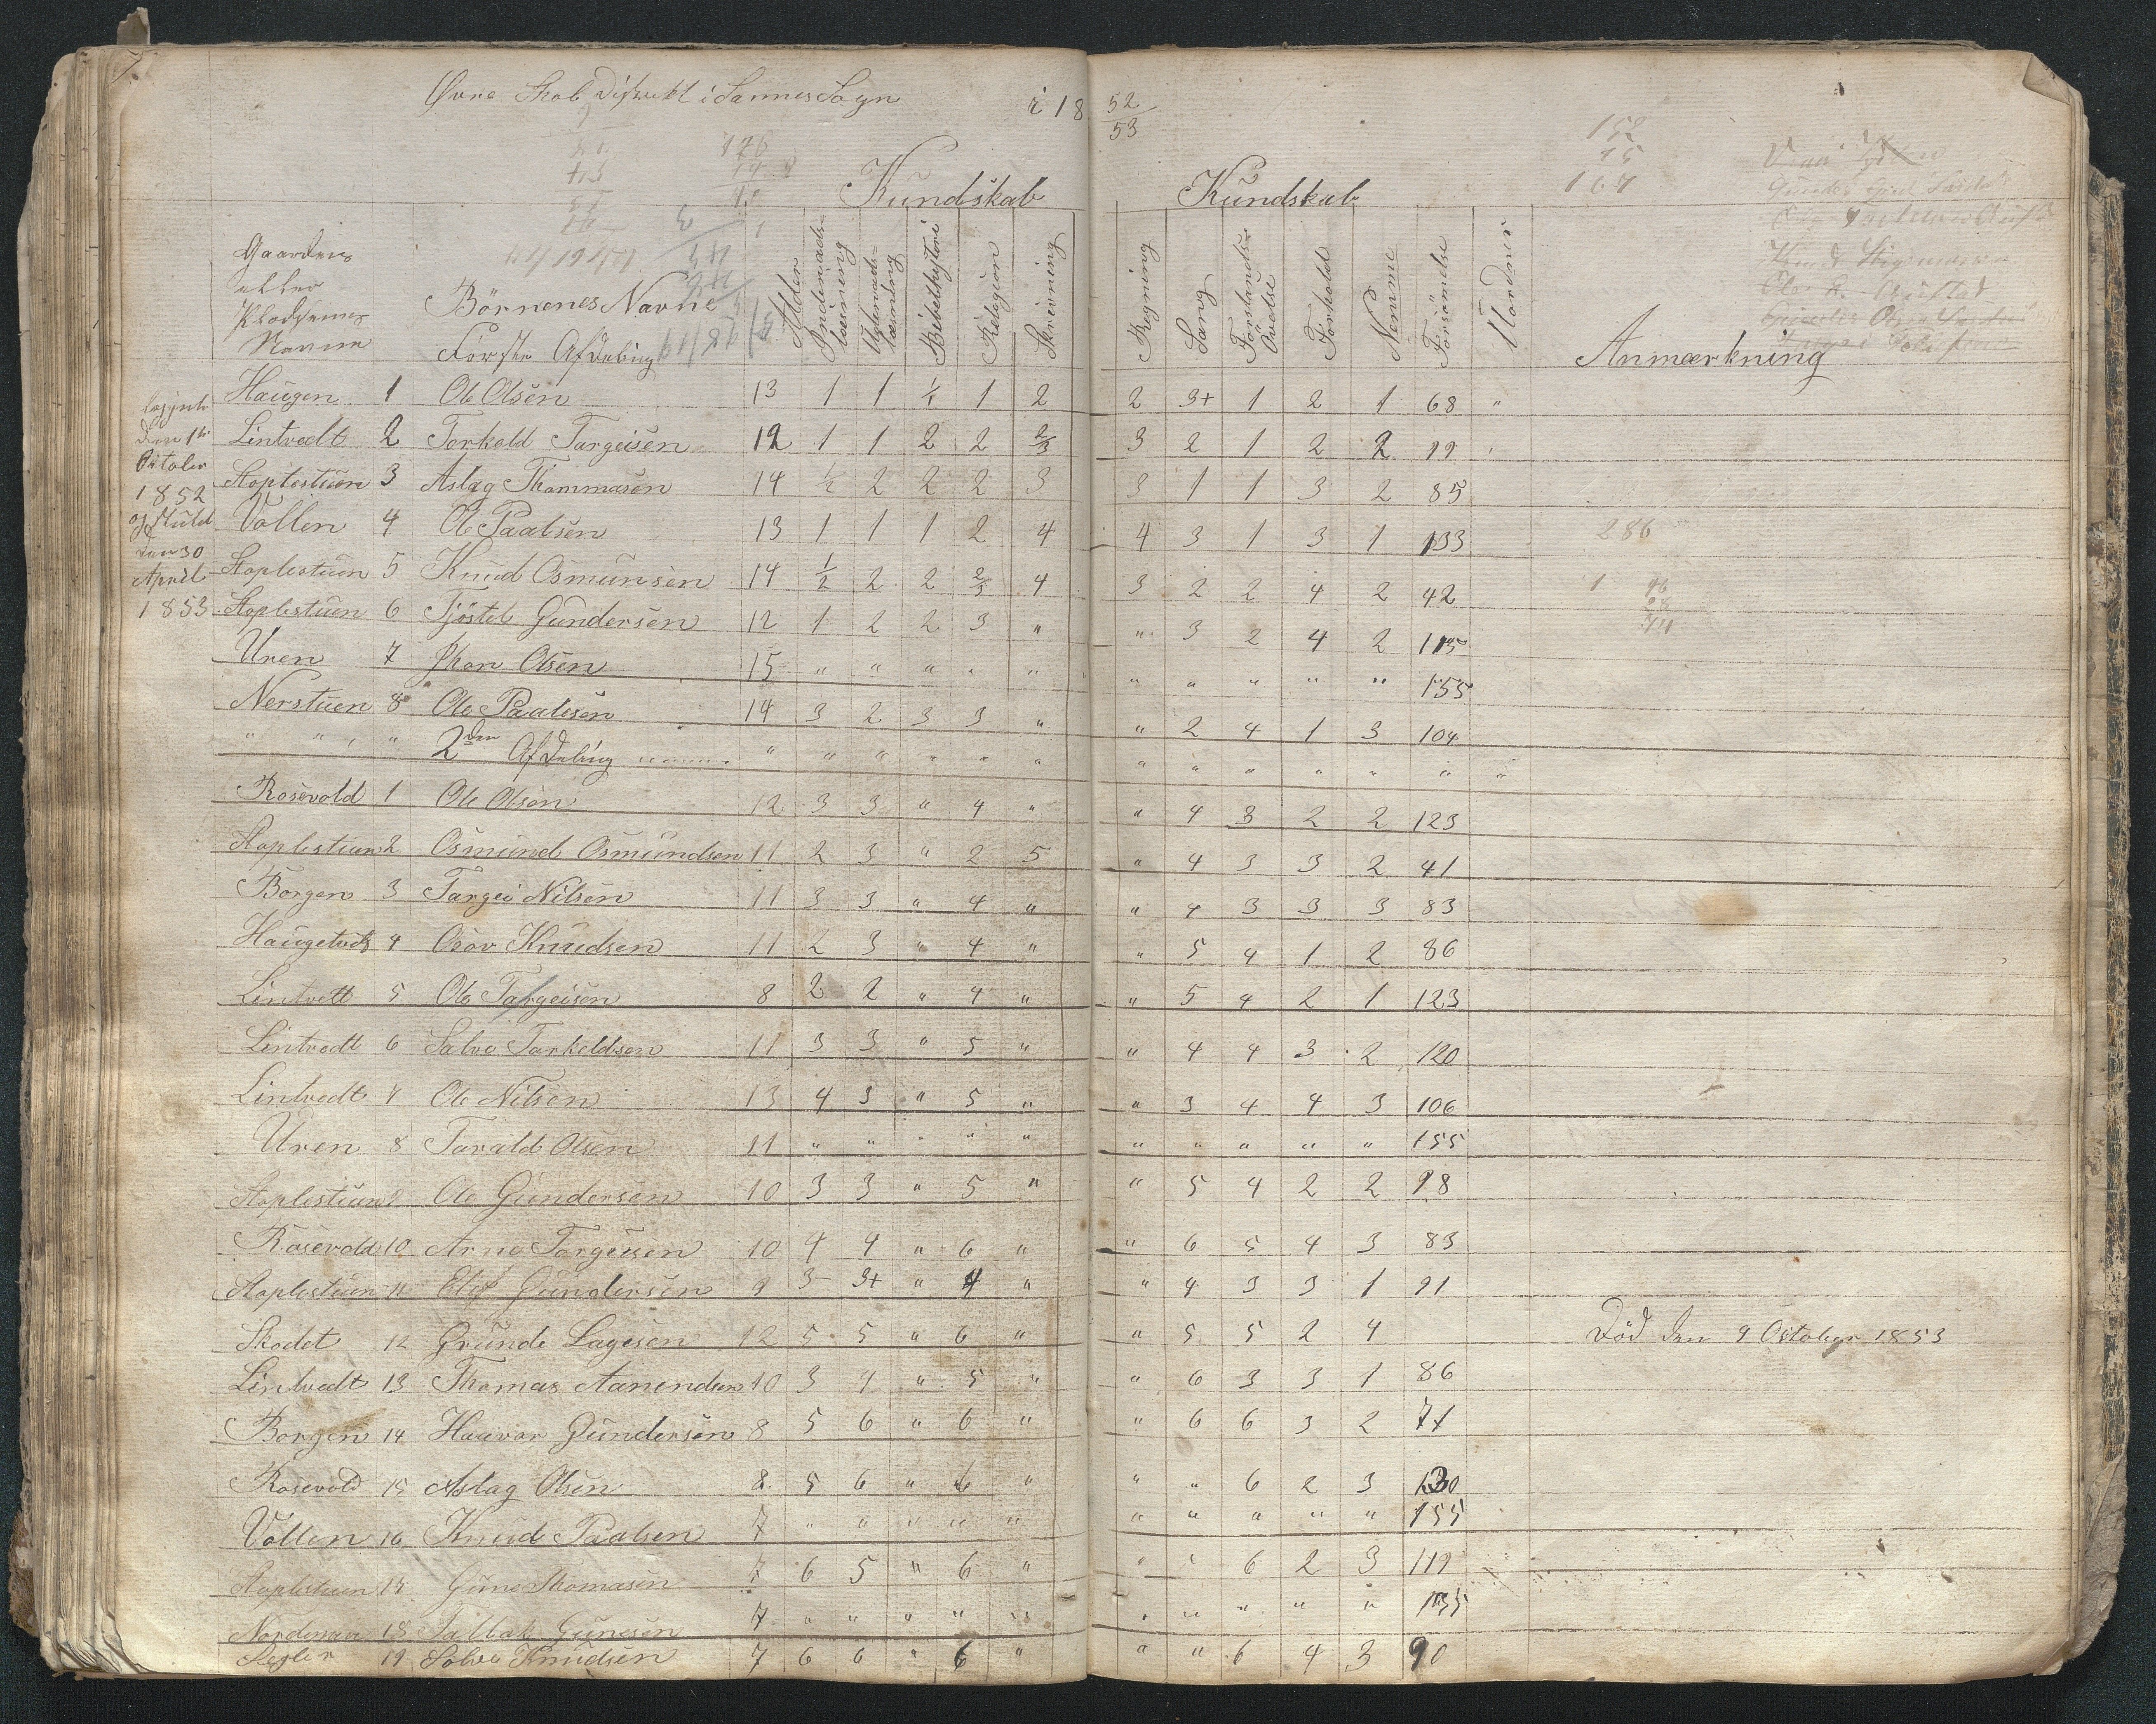 Øvre Skole Distrikt i Sannes Sogn i 18 52/53
Kundskab Kundskab
Gaardens
eller
Pladsernes
Navne
Börnenes Navne
Förste Afdeling
Alder
Indenads-
læsning
Udenads-
læsning
Bibelhistorie
Religion
Skrivning
Regning
Sang
Forstands-
Övelse
Forhold
Nemme
Forsömelse
Anmærkning
152
15
167
286
begynt
den 1te
October
1852
og slutet
den 30
April
1853
Haugen 1 Ole Olsen 13 1 1 1/2 1 2 2 3+ 1 2 1 68 "
Lintvedt 2 Torkeld Targeisen 12 1 1 2 2 2/3 3 2 1 2 2 99
Stoplestuen 3 Aslag Thommasen 14 1/2 2 2 2 3 3 1 1 3 2 85
Vollen 4 Ole Paalsen 13 1 1 1 2 4 4 3 1 3 1 133
Stoplestuen 5 Knud Osmunsen 14 1/2 2 2 2/3 4 3 2 2 4 2 42
Stoplestuen 6 Tjöstel Gundersen 12 1 2 2 3 " " 3 2 4 2 115
Uren 7 Jhon Olsen 15 " " " " " " " " " " 155
Nerstuen 8 Ole Paalsen 14 3 2 3 3 " " 2 4 1 3 104
" " " 2den Afdeling " " " " " " " " " " " " "
Rosevold 1 Ole Olsen 12 3 3 " 4 " " 4 3 2 2 123
Stoplestuen 2 Osmund Osmundsen 11 2 3 " 2 5 " 4 3 3 2 41
Borgen 3 Targei Nilsen 11 3 3 " 4 " " 4 3 3 3 83
Haugetvedt 4 Osov Knudsen 11 2 3 " 4 " " 5 4 1 2 86
Lintvett 5 Ole Targeisen 8 2 2 " 4 " " 5 4 2 1 123
Lintvedt 6 Salve Tarkeldsen 11 3 3 " 5 " " 4 4 3 2 120
Lintvedt 7 Ole Nilsen 13 4 3 " 5 " " 3 4 4 3 106
Uren 8 Tarald Olsen 11 " " " " " " " " " " 155
Stoplestuen 9 Ole Gundersen 10 3 3 " 5 " " 5 4 2 2 98
Rosevold 10 Arne Torgeisen 10 4 4 " 6 " " 6 5 4 3 83
Stoplestuen 11 Gundersen 9 3- 3+ " 4 " " 4 3 3 1 91
Skodet 12 Grunde Lagesen 12 5 5 " 6 " " 5 5 2 4 Död den 9 October 1853
Lintvedt 13 Thomas Aanendsen 10 3 4 " 5 " " 6 3 3 1 86
Borgen 14 Hauvor Gundersen 8 5 6 " 6 " " 6 6 3 2 71
Rosevold 15 Aslag Olsen 8 5 6 " 6 " " " 6 2 3 130
Vollen 16 Knud Paalsen 7 " " " " " " " " " " 155
Stoplestuen 17 Gune Thomasen 7 6 5 " 6 " " " 6 2 3 119
18 Tallak Gunesen 7 " " " " " " " " " " 155
19 Salve Knudsen 7 6 6 " 6 " " " 6 4 3 90